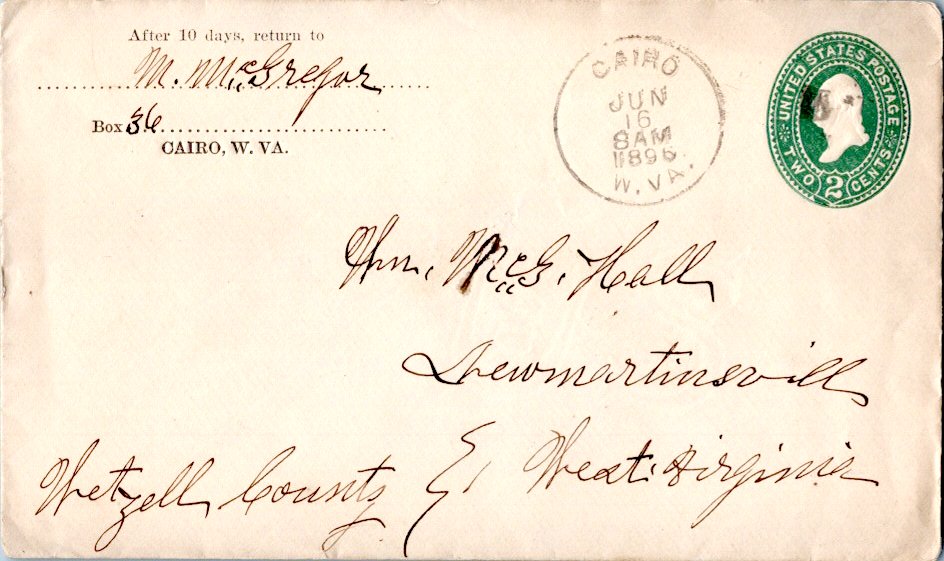 After 10 days, return to
M. McGregor
Box 36
CAIRO, W. VA.
CAIRO
JUN
16
8AM
1896
W. VA.
UNITED STATES POSTAGE
TWO 2 CENTS
Wm. McG. Hall
Newmartinsvill
Wetzell County West Virginia